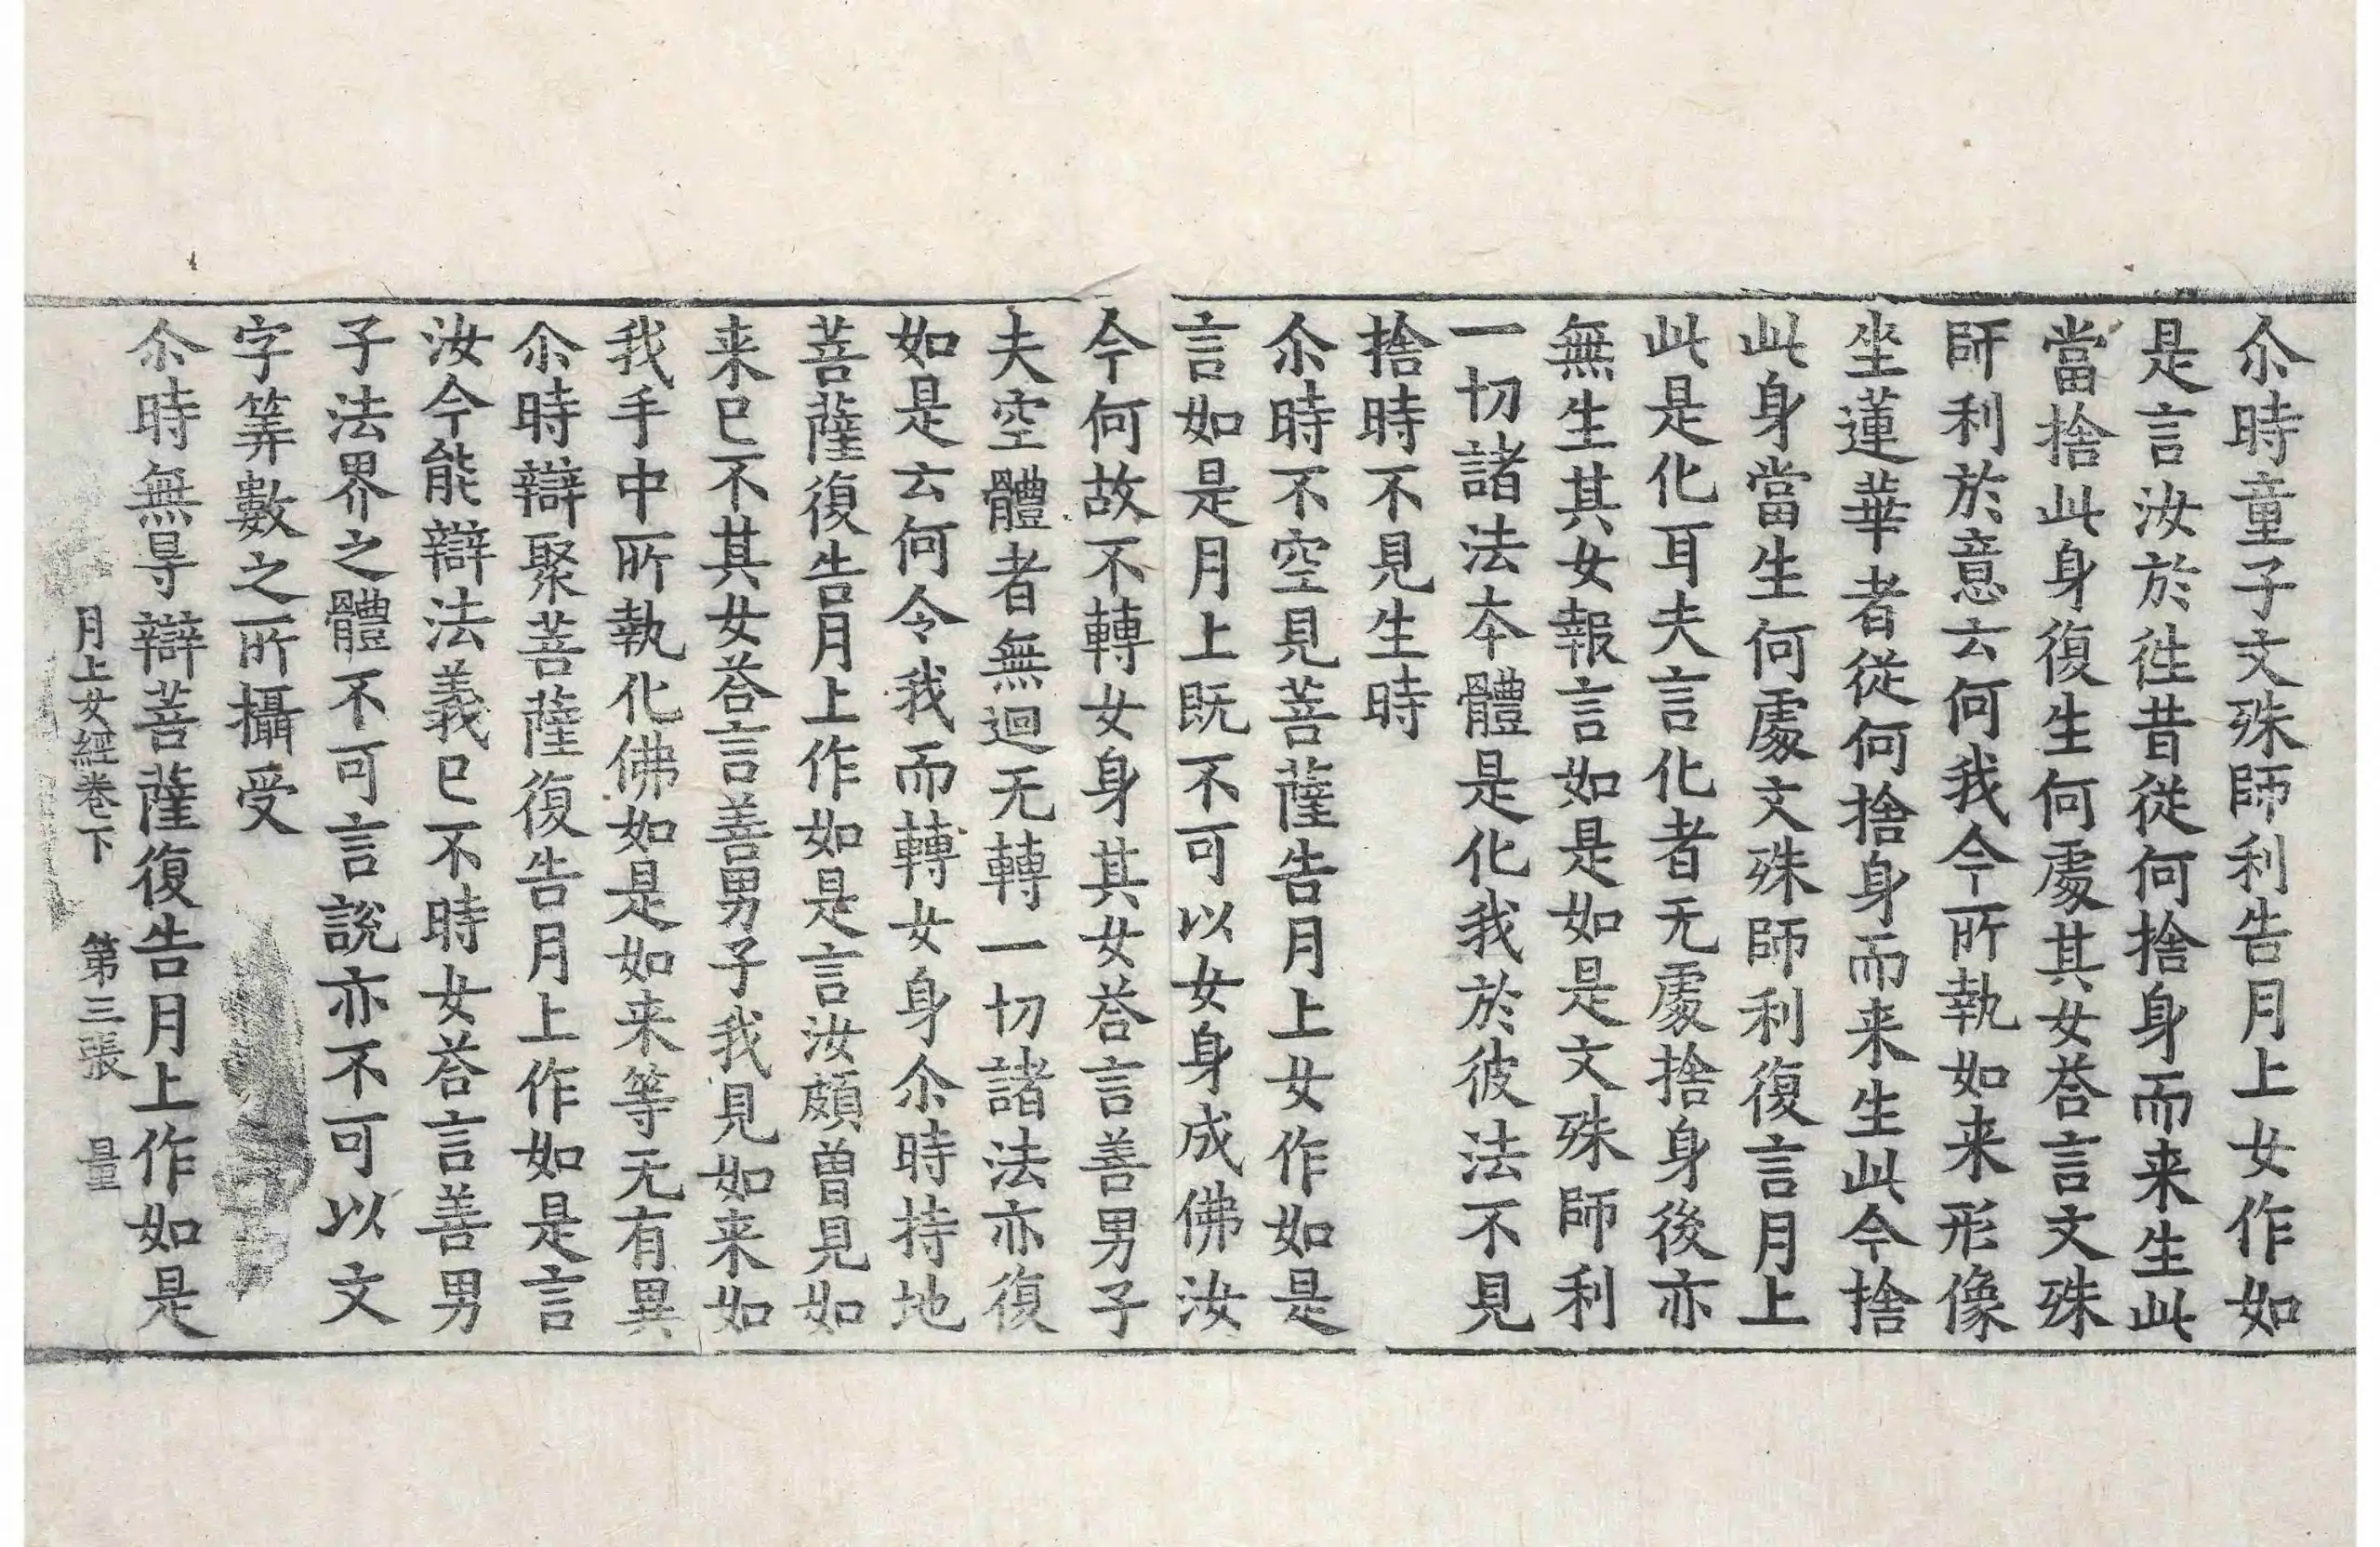 尒時童子文殊師利告月上女作如
是言汝於徃昔從何捨身而来生此
當捨此身復生何處其女荅言文殊
師利於意云何我今所執如来形像
坐蓮華者從何捨身而来生此今捨
此身當生何處文殊師利復言月上
此是化耳夫言化者无處捨身後亦
無生其女報言如是如是文殊師利
一切諸法本體是化我於彼法不見
捨時不見生時
尒時不空見菩薩告月上女作如是
言如是月上既不可以女身成佛汝
今何故不轉女身其女荅言善男子
夫空體者無迴无轉一切諸法亦復
如是云何令我而轉女身尒時持地
菩薩復告月上作如是言汝頗曽見如
来已不其女荅言善男子我見如来如
我手中所執化佛如是如来等无有異
尒時辯聚菩薩復告月上作如是言
汝今能辯法義已不時女荅言善男
子法界之體不可言說亦不可以文
字筭數之所攝受
尒時無㝵辯菩薩復告月上作如是
月上女經卷下　第三張　量